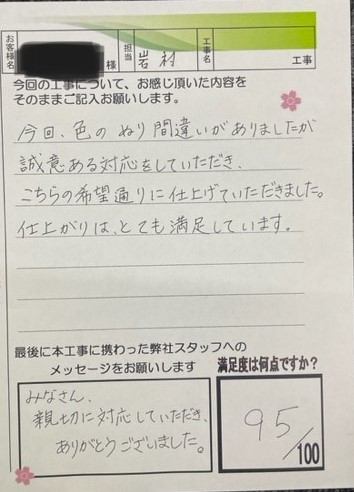 お客様名 様 担当 岩村 工事名 工事
今回の工事について、お感じ頂いた内容を
そのままご記入お願いします。
今回、色のぬり間違いがありましたが
誠意ある対応をしていただき、
こちらの希望通りに仕上げていただきました。
仕上がりは、とても満足しています。
最後に本工事に携わった弊社スタッフへの
メッセージをお願いします
満足度は何点ですか?
みなさん、
親切に対応していただき、
ありがとうございました。
95/100